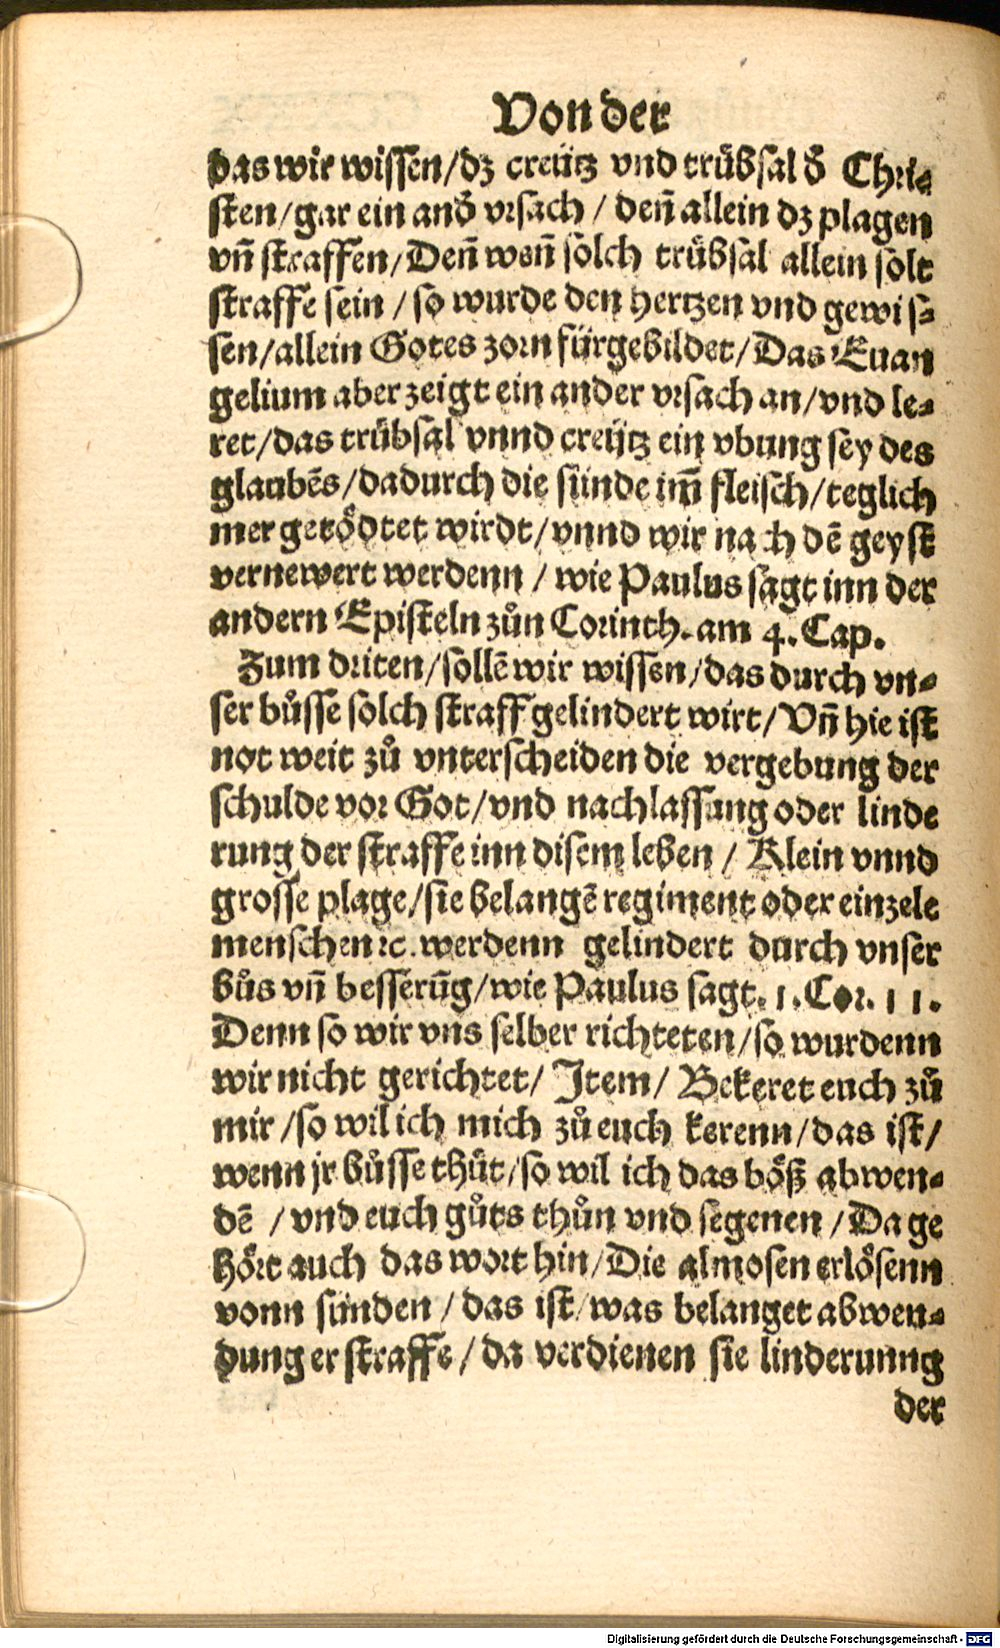 Von der
das wir wissen/dz creütz vnd trübsal d̕ Chri⸗
sten/gar ein and̕ vrsach / deñ allein dz plagen
vñ straffen/Deñ weñ solch trübsal allein solt
straffe sein / so wurde den hertzen vnd gewis⸗
sen/allein Gotes zorn fürgebildet/Das Euan
gelium aber zeigt ein ander vrsach an/vnd le⸗
ret/das trübsal vnnd creütz ein vbung sey des
glaubēs/dadurch die sünde im̄ fleisch/teglich
mer getödtet wirdt/vnnd wir nach dē geyst
vernewert werdenn / wie Paulus sagt inn der
andern Episteln zůn Corinth. am 4. Cap.
Zum driten/sollē wir wissen/das durch vn⸗
ser bůsse solch straff gelindert wirt/Vñ hie ist
not weit zů vnterscheiden die vergebung der
schulde vor Got/vnd nachlassung oder linde
rung der straffe inn disem leben / Klein vnnd
grosse plage/sie belangē regiment oder einzele
menschen ꝛc. werdenn gelindert durch vnser
bůs vñ besserūg/wie Paulus sagt. 1. Cor. 11.
Denn so wir vns selber richteten/so wurdenn
wir nicht gerichtet/ Item/ Bekeret euch zů
mir /so wil ich mich zů euch kerenn/das ist/
wenn jr bůsse thůt/so wil ich das böß abwen⸗
dē /vnd euch gůts thůn vnd segenen /Da ge
hört auch das wort hin/Die almosen erlösenn
vonn sünden /das ist/was belanget abwen⸗
dung er straffe/da verdienen sie linderunng
der
Digitalisierung gefördert durch die Deutsche Forschungsgemeinschaft - DFG